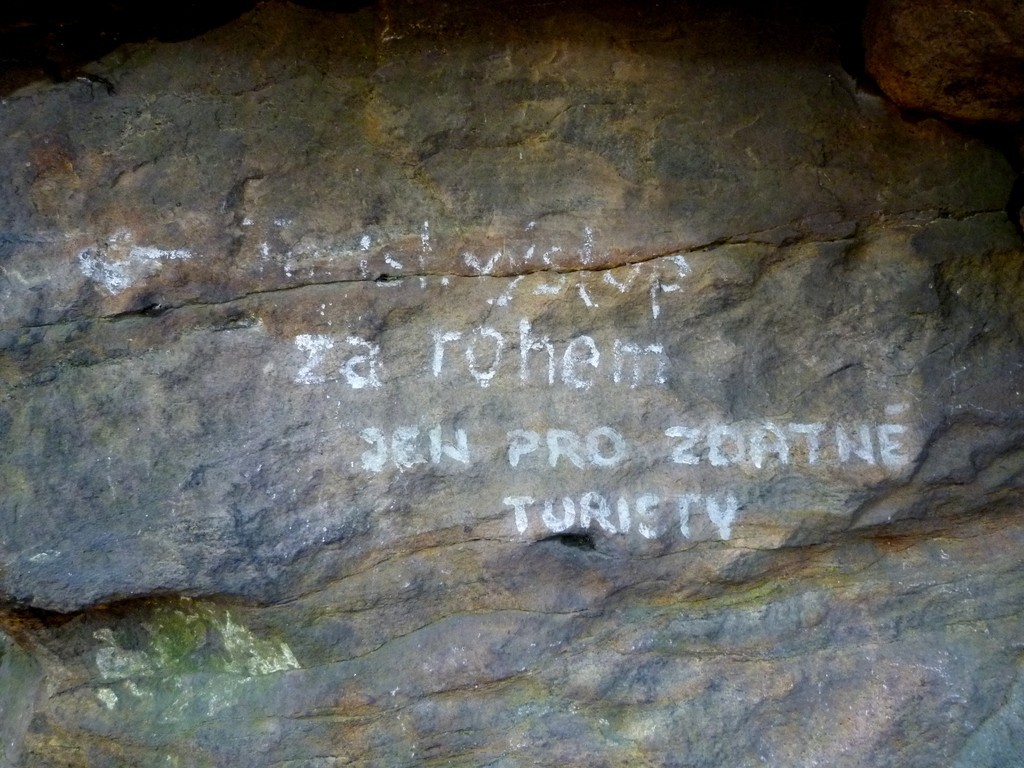 výstup
za rohem
JEN PRO ZDATNÉ
TURISTY